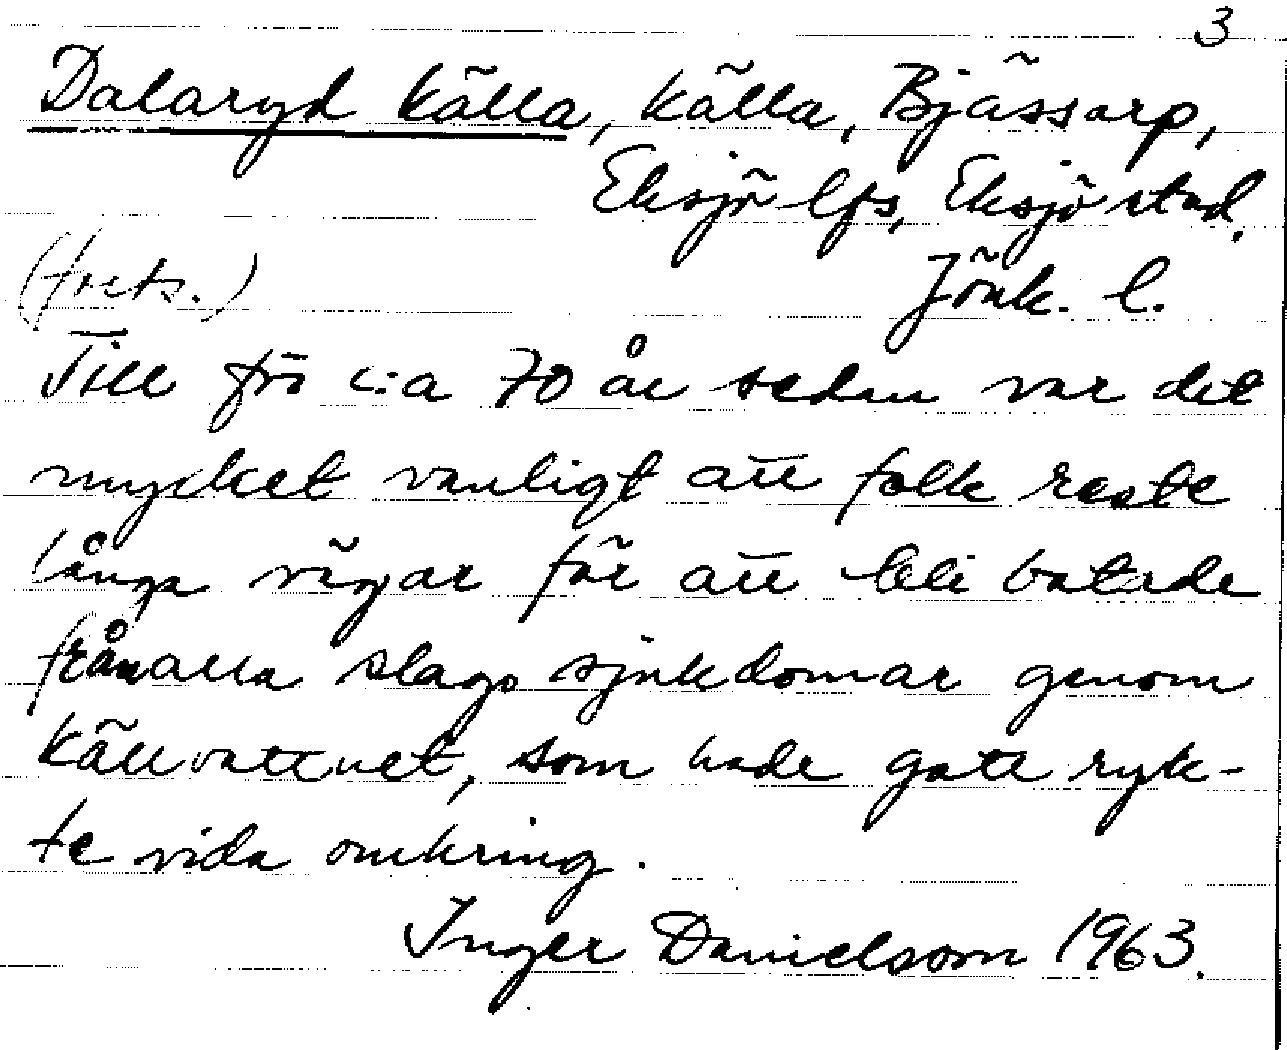 3
Dalaryd källa, källa, Bjässarp,
Eksjö lfs, Eksjö stad.
(forts.) Jönk. l.
Till för c:a 70 år sedan var det
mycket vanligt att folk reste
långa vägar för att bli botade
från alla slags sjukdomar genom
källvattnet, som hade gott ryk-
te vida omkring.
Inger Danielsson 1963.